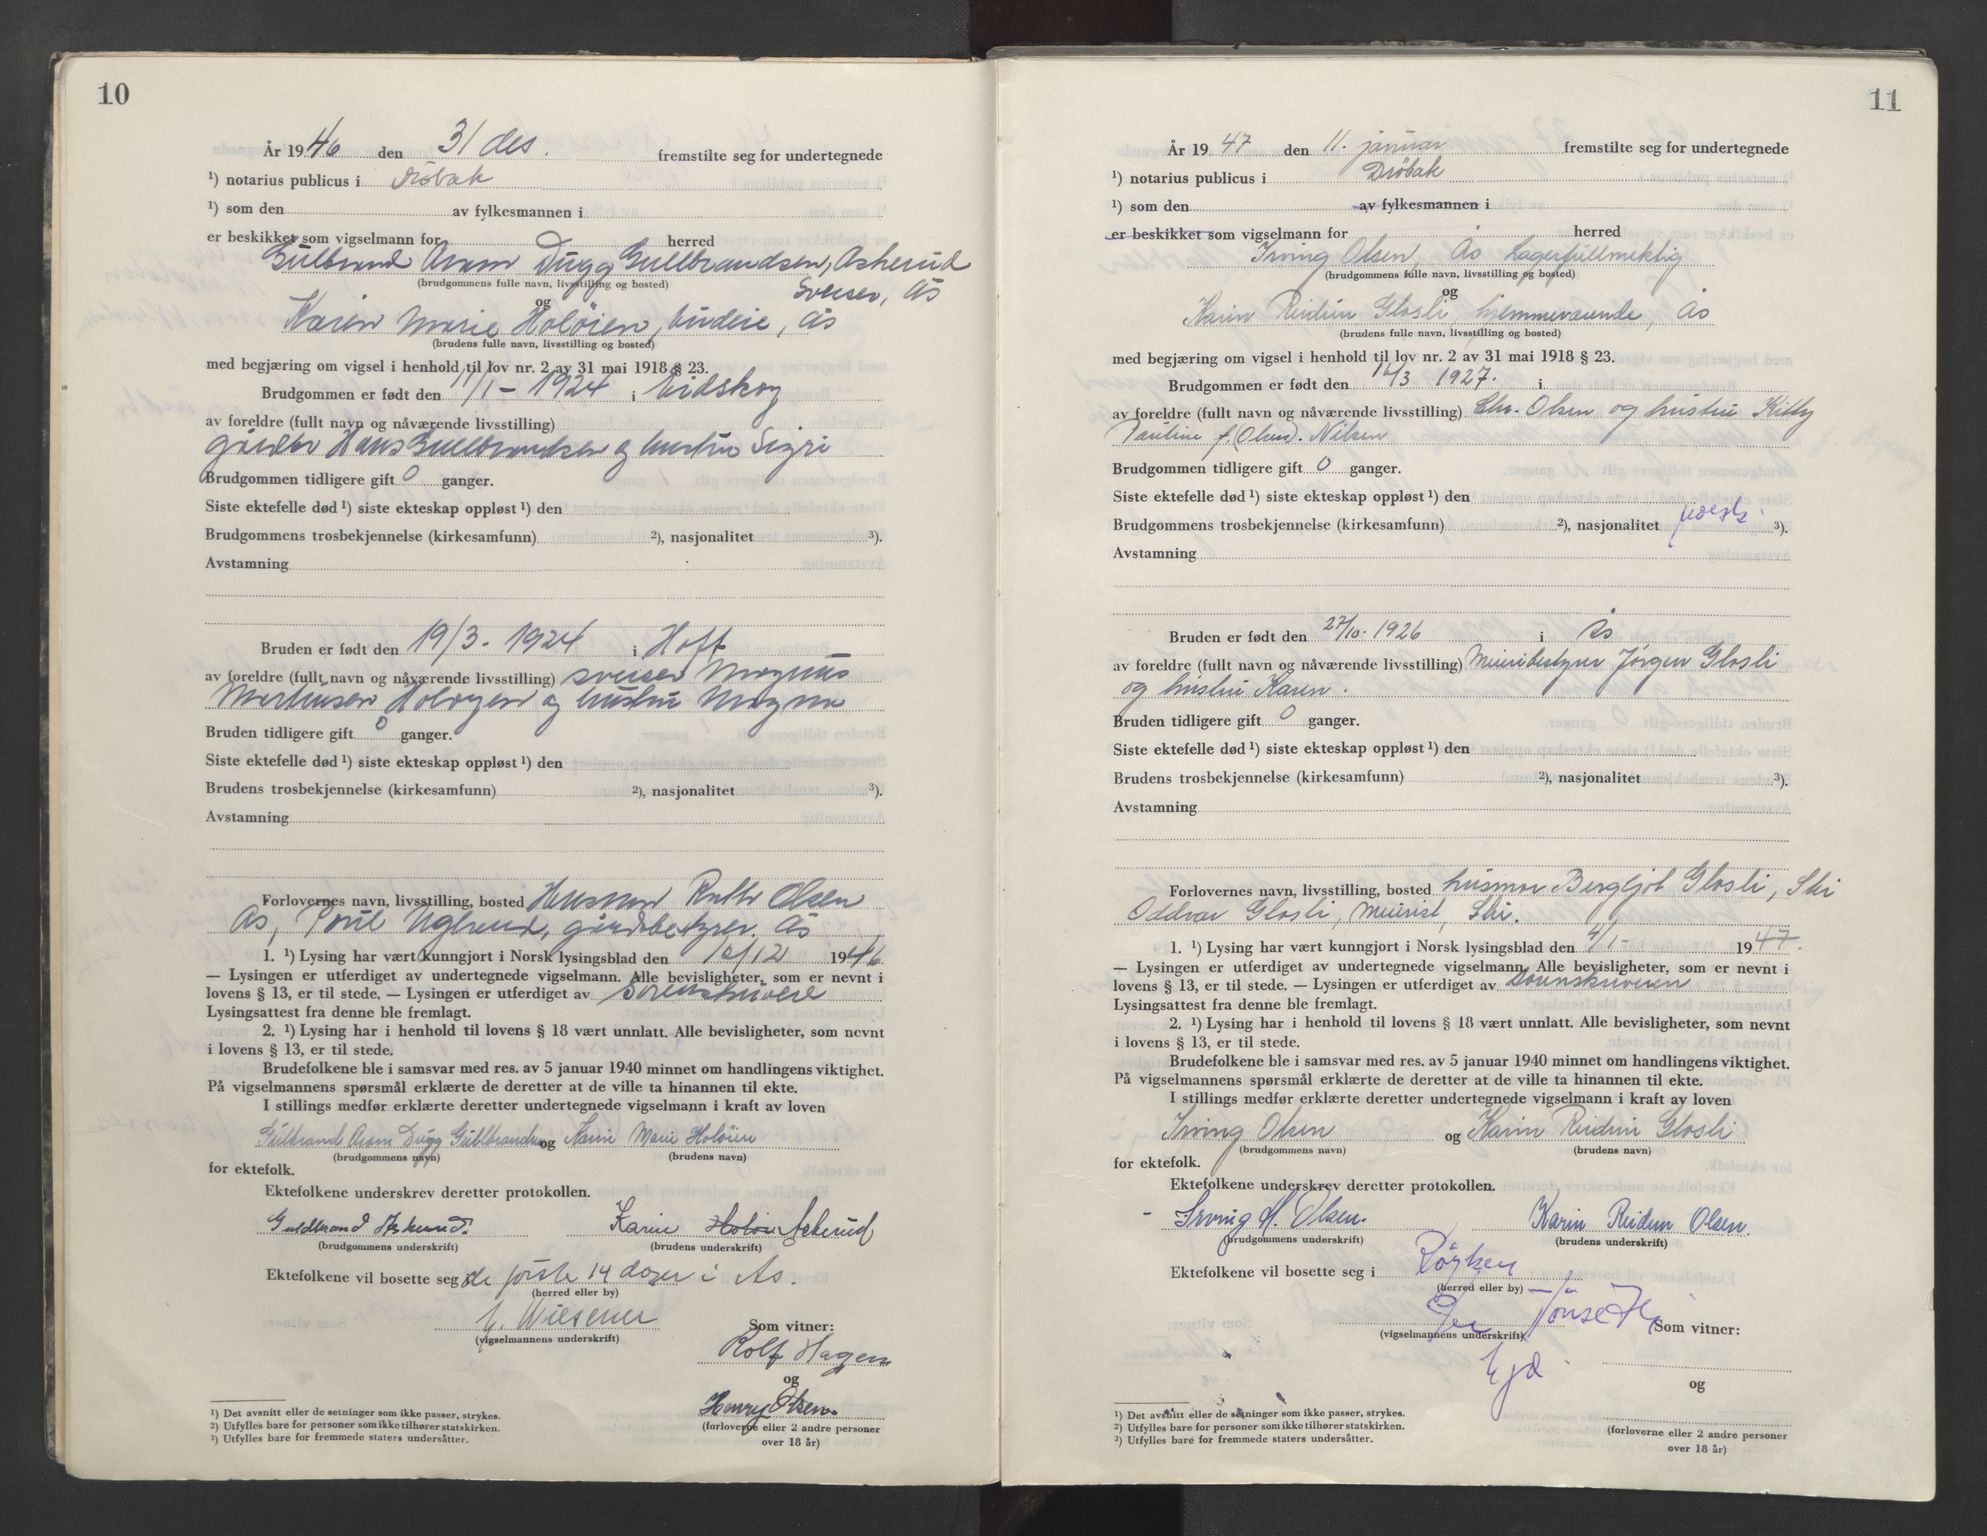 10
År 1946 den 31 des. fremstilte seg for undertegnede
¹) notarius publicus i Drøbak
¹) som den av fylkesmannen i
er beskikket som vigselmann for herred
Gulbrand Aram Dugg Gullbrandsen, Askerud
(brudgommens fulle navn, livsstilling og bosted)
sveiser, Ås
og
Karen Marie Holøien, budeie, Ås
(brudens fulle navn, livsstilling og bosted)
med begjæring om vigsel i henhold til lov nr. 2 av 31 mai 1918 § 23.
Brudgommen er født den 11/1 - 1924 i Eidskog
av foreldre (fullt navn og nåværende livsstilling)
gårdbr Hans Gullbrandsen og hustru Sigri
Brudgommen tidligere gift 0 ganger.
Siste ektefelle død ¹) siste ekteskap oppløst ¹) den
Brudgommens trosbekjennelse (kirkesamfunn) ²), nasjonalitet ³).
Avstamning
Bruden er født den 19/3 - 1924 i Hoff
av foreldre (fullt navn og nåværende livsstilling) sveiser Magnus
Marhinsen Holøyen og hustru Magna
Bruden tidligere gift 0 ganger.
Siste ektefelle død ¹) siste ekteskap oppløst ¹) den
Brudens trosbekjennelse (kirkesamfunn) ²), nasjonalitet ³).
Avstamning
Forlovernes navn, livsstilling, bosted Husmor Ruth Olsen
Ås, Poul Uglund, gårdbestyrer, Ås
1. ¹) Lysing har vært kunngjort i Norsk lysingsblad den 10/12 1946
— Lysingen er utferdiget av undertegnede vigselmann. Alle bevisligheter, som er nevnt i
lovens § 13, er til stede. — Lysingen er utferdiget av Sorenskrivere
Lysingsattest fra denne ble fremlagt.
2. ¹) Lysing har i henhold til lovens § 18 vært unnlatt. Alle bevisligheter, som nevnt
i lovens § 13, er til stede.
Brudefolkene ble i samsvar med res. av 5 januar 1940 minnet om handlingens viktighet.
På vigselmannens spørsmål erklærte de deretter at de ville ta hinannen til ekte.
I stillings medfør erklærte deretter undertegnede vigselmann i kraft av loven
Gulbrand Aram Dugg Gullbrandsen og Karin Marie Holøien
(brudgommens navn) (brudens navn)
for ektefolk.
Ektefolkene underskrev deretter protokollen.
Guldbrand Askerud. Karin Holøi Askerud
(brudgommens underskrift) (brudens underskrift)
Ektefolkene vil bosette seg i de første 14 dager i Ås.
(herred eller by)
Wiesener
(vigselmannens underskrift)
Som vitner:
Rolf Hagen
og
Henry Olsen.
(forloverne eller 2 andre personer
over 18 år)
¹) Det avsnitt eller de setninger som ikke passer, strykes.
²) Utfylles bare for personer som ikke tilhører statskirken.
³) Utfylles bare for fremmede staters undersåtter.
11
År 1947 den 11. januar fremstilte seg for undertegnede
¹) notarius publicus i Drøbak
¹) som den av fylkesmannen i
er beskikket som vigselmann for herred
Irving Olsen, Ås Lagerfullmektig
(brudgommens fulle navn, livsstilling og bosted)
og
Karin Reidun Glosli, hjemmeværende, Ås
(brudens fulle navn, livsstilling og bosted)
med begjæring om vigsel i henhold til lov nr. 2 av 31 mai 1918 § 23.
Brudgommen er født den 16/3 1927. i
av foreldre (fullt navn og nåværende livsstilling) Chr. Olsen og hustru Kitty
Pauline f. (Olsen). Nilsen
Brudgommen tidligere gift 0 ganger.
Siste ektefelle død ¹) siste ekteskap oppløst ¹) den
Brudgommens trosbekjennelse (kirkesamfunn) ²), nasjonalitet norsk ³).
Avstamning
Bruden er født den 27/10. 1926 i Ås
av foreldre (fullt navn og nåværende livsstilling) Meieribestyrer Jørgen Glosli
og hustru Karen.
Bruden tidligere gift 0 ganger.
Siste ektefelle død ¹) siste ekteskap oppløst ¹) den
Brudens trosbekjennelse (kirkesamfunn) ²), nasjonalitet ³).
Avstamning
Forlovernes navn, livsstilling, bosted husmor Bergljot Glosli, Ski
Oddvar Glosli, Meierist, Ski.
1. ¹) Lysing har vært kunngjort i Norsk lysingsblad den 4/1 - 1947.
— Lysingen er utferdiget av undertegnede vigselmann. Alle bevisligheter, som er nevnt i
lovens § 13, er til stede. — Lysingen er utferdiget av Sorenskriveren
Lysingsattest fra denne ble fremlagt.
2. ¹) Lysing har i henhold til lovens § 18 vært unnlatt. Alle bevisligheter, som nevnt
i lovens § 13, er til stede.
Brudefolkene ble i samsvar med res. av 5 januar 1940 minnet om handlingens viktighet.
På vigselmannens spørsmål erklærte de deretter at de ville ta hinannen til ekte.
I stillings medfør erklærte deretter undertegnede vigselmann i kraft av loven
Irving Olsen og Karin Reidun Glosli
(brudgommens navn) (brudens navn)
for ektefolk.
Ektefolkene underskrev deretter protokollen.
Irving H. Olsen. Karin Reidun Olsen.
(brudgommens underskrift) (brudens underskrift)
Ektefolkene vil bosette seg i Røyken
(herred eller by)
(vigselmannens underskrift)
Som vitner:
og
(forloverne eller 2 andre personer
over 18 år)
¹) Det avsnitt eller de setninger som ikke passer, strykes.
²) Utfylles bare for personer som ikke tilhører statskirken.
³) Utfylles bare for fremmede staters undersåtter.